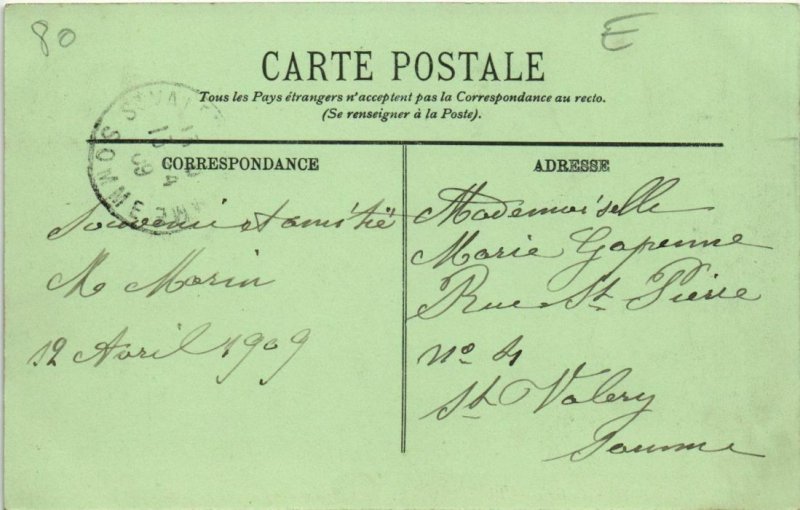 80
E
CARTE POSTALE
Tous les Pays étrangers n'acceptent pas la Correspondance au recto.
(Se renseigner à la Poste).
CORRESPONDANCE
Souvenir et amitié
M Morin
12 Avril 1909
ADRESSE
Mademoiselle
Marie Gapenne
Rue St Pierre
No 4
St Valery
Somme
ST VALE
13
4
09
SOMME